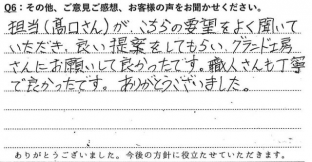 Q6：その他、ご意見ご感想、お客様の声をお聞かせください。
担当(高口さん)が、こちらの要望をよく聞いて
いただき、良い提案をしてもらい、グラード工房
さんにお願いして良かったです。職人さんも丁寧
で良かったです。ありがとうございました。
ありがとうございました。今後の方針に役立たせていただきます。